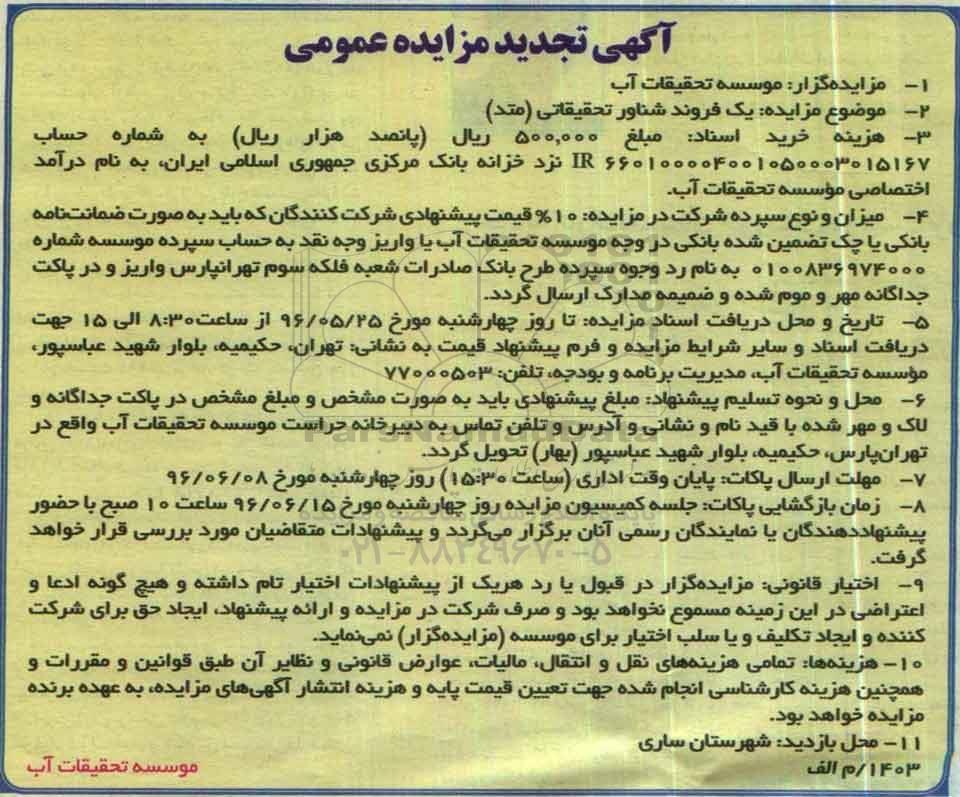 آگهی تجدید مزایده عمومی
۱- مزایده‌گزار: موسسه تحقیقات آب
۲- موضوع مزایده: یک فروند شناور تحقیقاتی (متد)
۳- هزینه خرید اسناد: مبلغ ۵۰۰,۰۰۰ ریال (پانصد هزار ریال) به شماره حساب
IR ۶۶۰۱۰۰۰۰۴۰۰۱۰۵۰۰۰۳۰۱۵۱۶۷ نزد خزانه بانک مرکزی جمهوری اسلامی ایران، به نام درآمد
اختصاصی مؤسسه تحقیقات آب.
۴- میزان و نوع سپرده شرکت در مزایده: ۱۰% قیمت پیشنهادی شرکت کنندگان که باید به صورت ضمانت‌نامه
بانکی یا چک تضمین شده بانکی در وجه موسسه تحقیقات آب یا واریز وجه نقد به حساب سپرده موسسه شماره
۰۱۰۰۸۳۶۹۷۴۰۰۰ به نام رد وجوه سپرده طرح بانک صادرات شعبه فلکه سوم تهرانپارس واریز و در پاکت
جداگانه مهر و موم شده و ضمیمه مدارک ارسال گردد.
۵- تاریخ و محل دریافت اسناد مزایده: تا روز چهارشنبه مورخ ۹۶/۰۵/۲۵ از ساعت ۸:۳۰ الی ۱۵ جهت
دریافت اسناد و سایر شرایط مزایده و فرم پیشنهاد قیمت به نشانی: تهران، حکیمیه، بلوار شهید عباسپور،
مؤسسه تحقیقات آب، مدیریت برنامه و بودجه، تلفن: ۷۷۰۰۰۵۰۳
۶- محل و نحوه تسلیم پیشنهاد: مبلغ پیشنهادی باید به صورت مشخص و مبلغ مشخص در پاکت جداگانه و
لاک و مهر شده با قید نام و نشانی و آدرس و تلفن تماس به دبیرخانه حراست موسسه تحقیقات آب واقع در
تهران‌پارس، حکیمیه، بلوار شهید عباسپور (بهار) تحویل گردد.
۷- مهلت ارسال پاکات: پایان وقت اداری (ساعت ۱۵:۳۰) روز چهارشنبه مورخ ۹۶/۰۶/۰۸
۸- زمان بازگشایی پاکات: جلسه کمیسیون مزایده روز چهارشنبه مورخ ۹۶/۰۶/۱۵ ساعت ۱۰ صبح با حضور
پیشنهاددهندگان یا نمایندگان رسمی آنان برگزار می‌گردد و پیشنهادات متقاضیان مورد بررسی قرار خواهد
گرفت.
۹- اختیار قانونی: مزایده‌گزار در قبول یا رد هریک از پیشنهادات اختیار تام داشته و هیچ گونه ادعا و
اعتراضی در این زمینه مسموع نخواهد بود و صرف شرکت در مزایده و ارائه پیشنهاد، ایجاد حق برای شرکت
کننده و ایجاد تکلیف و یا سلب اختیار برای موسسه (مزایده‌گزار) نمی‌نماید.
۱۰- هزینه‌ها: تمامی هزینه‌های نقل و انتقال، مالیات، عوارض قانونی و نظایر آن طبق قوانین و مقررات و
همچنین هزینه کارشناسی انجام شده جهت تعیین قیمت پایه و هزینه انتشار آگهی‌های مزایده، به عهده برنده
مزایده خواهد بود.
۱۱- محل بازدید: شهرستان ساری
۱۴۰۳/م الف
موسسه تحقیقات آب
ParsNamadData
۰۲۱-۸۸۳۴۹۶۷۰-۵